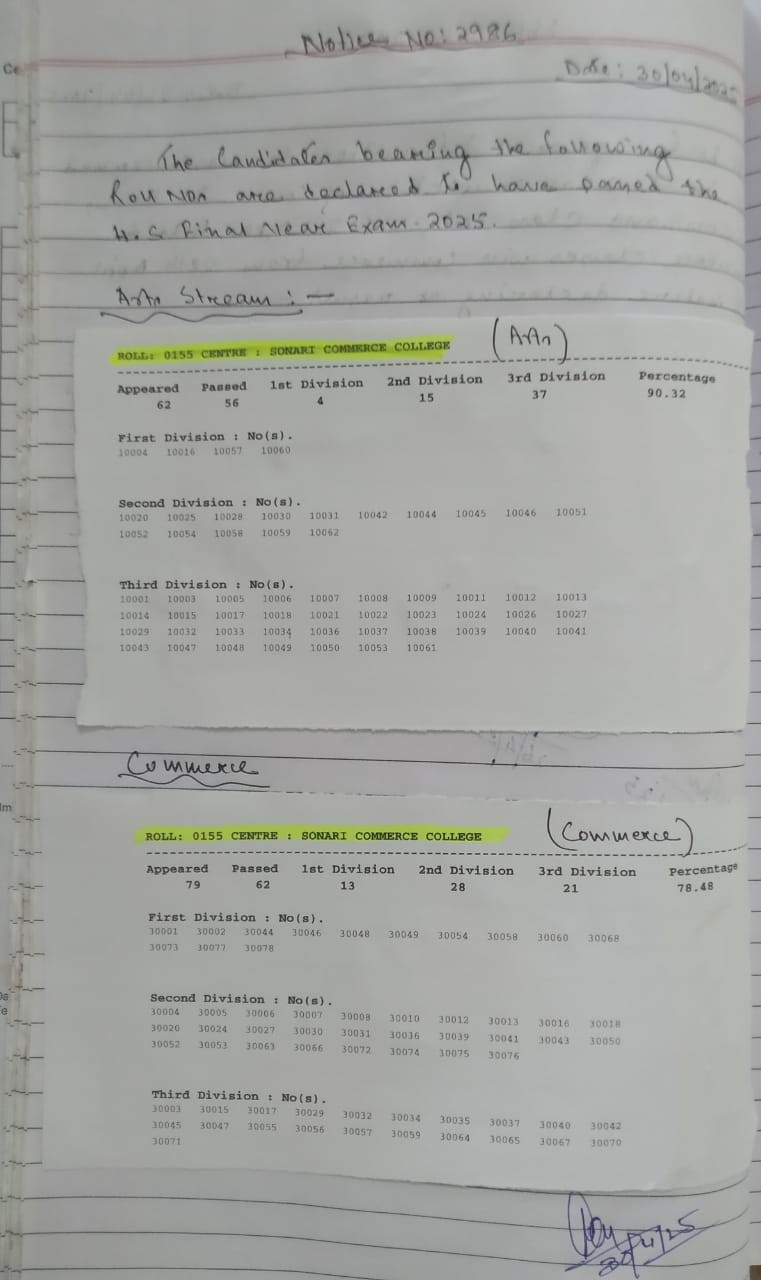 Notice No: 2986
Date: 30/04/2025
The Candidates bearing the following
Roll Nos are declared to have passed the
H.S Final Year Exam-2025.
Arts Stream : —
ROLL: 0155 CENTRE : SONARI COMMERCE COLLEGE (Arts)
Appeared Passed 1st Division 2nd Division 3rd Division Percentage
62 56 4 15 37 90.32
First Division : No(s).
10004 10016 10057 10060
Second Division : No(s).
10020 10025 10028 10030 10031 10042 10044 10045 10046 10051
10052 10054 10058 10059 10062
Third Division : No(s).
10001 10003 10005 10006 10007 10008 10009 10011 10012 10013
10014 10015 10017 10018 10021 10022 10023 10024 10026 10027
10029 10032 10033 10034 10036 10037 10038 10039 10040 10041
10043 10047 10048 10049 10050 10053 10061
Commerce
ROLL: 0155 CENTRE : SONARI COMMERCE COLLEGE (Commerce)
Appeared Passed 1st Division 2nd Division 3rd Division Percentage
79 62 13 28 21 78.48
First Division : No(s).
30001 30002 30044 30046 30048 30049 30054 30058 30060 30068
30073 30077 30078
Second Division : No(s).
30004 30005 30006 30007 30008 30010 30012 30013 30016 30018
30020 30024 30027 30030 30031 30036 30039 30041 30043 30050
30052 30053 30063 30066 30072 30074 30075 30076
Third Division : No(s).
30003 30015 30017 30029 30032 30034 30035 30037 30040 30042
30045 30047 30055 30056 30057 30059 30064 30065 30067 30070
30071
30/4/25